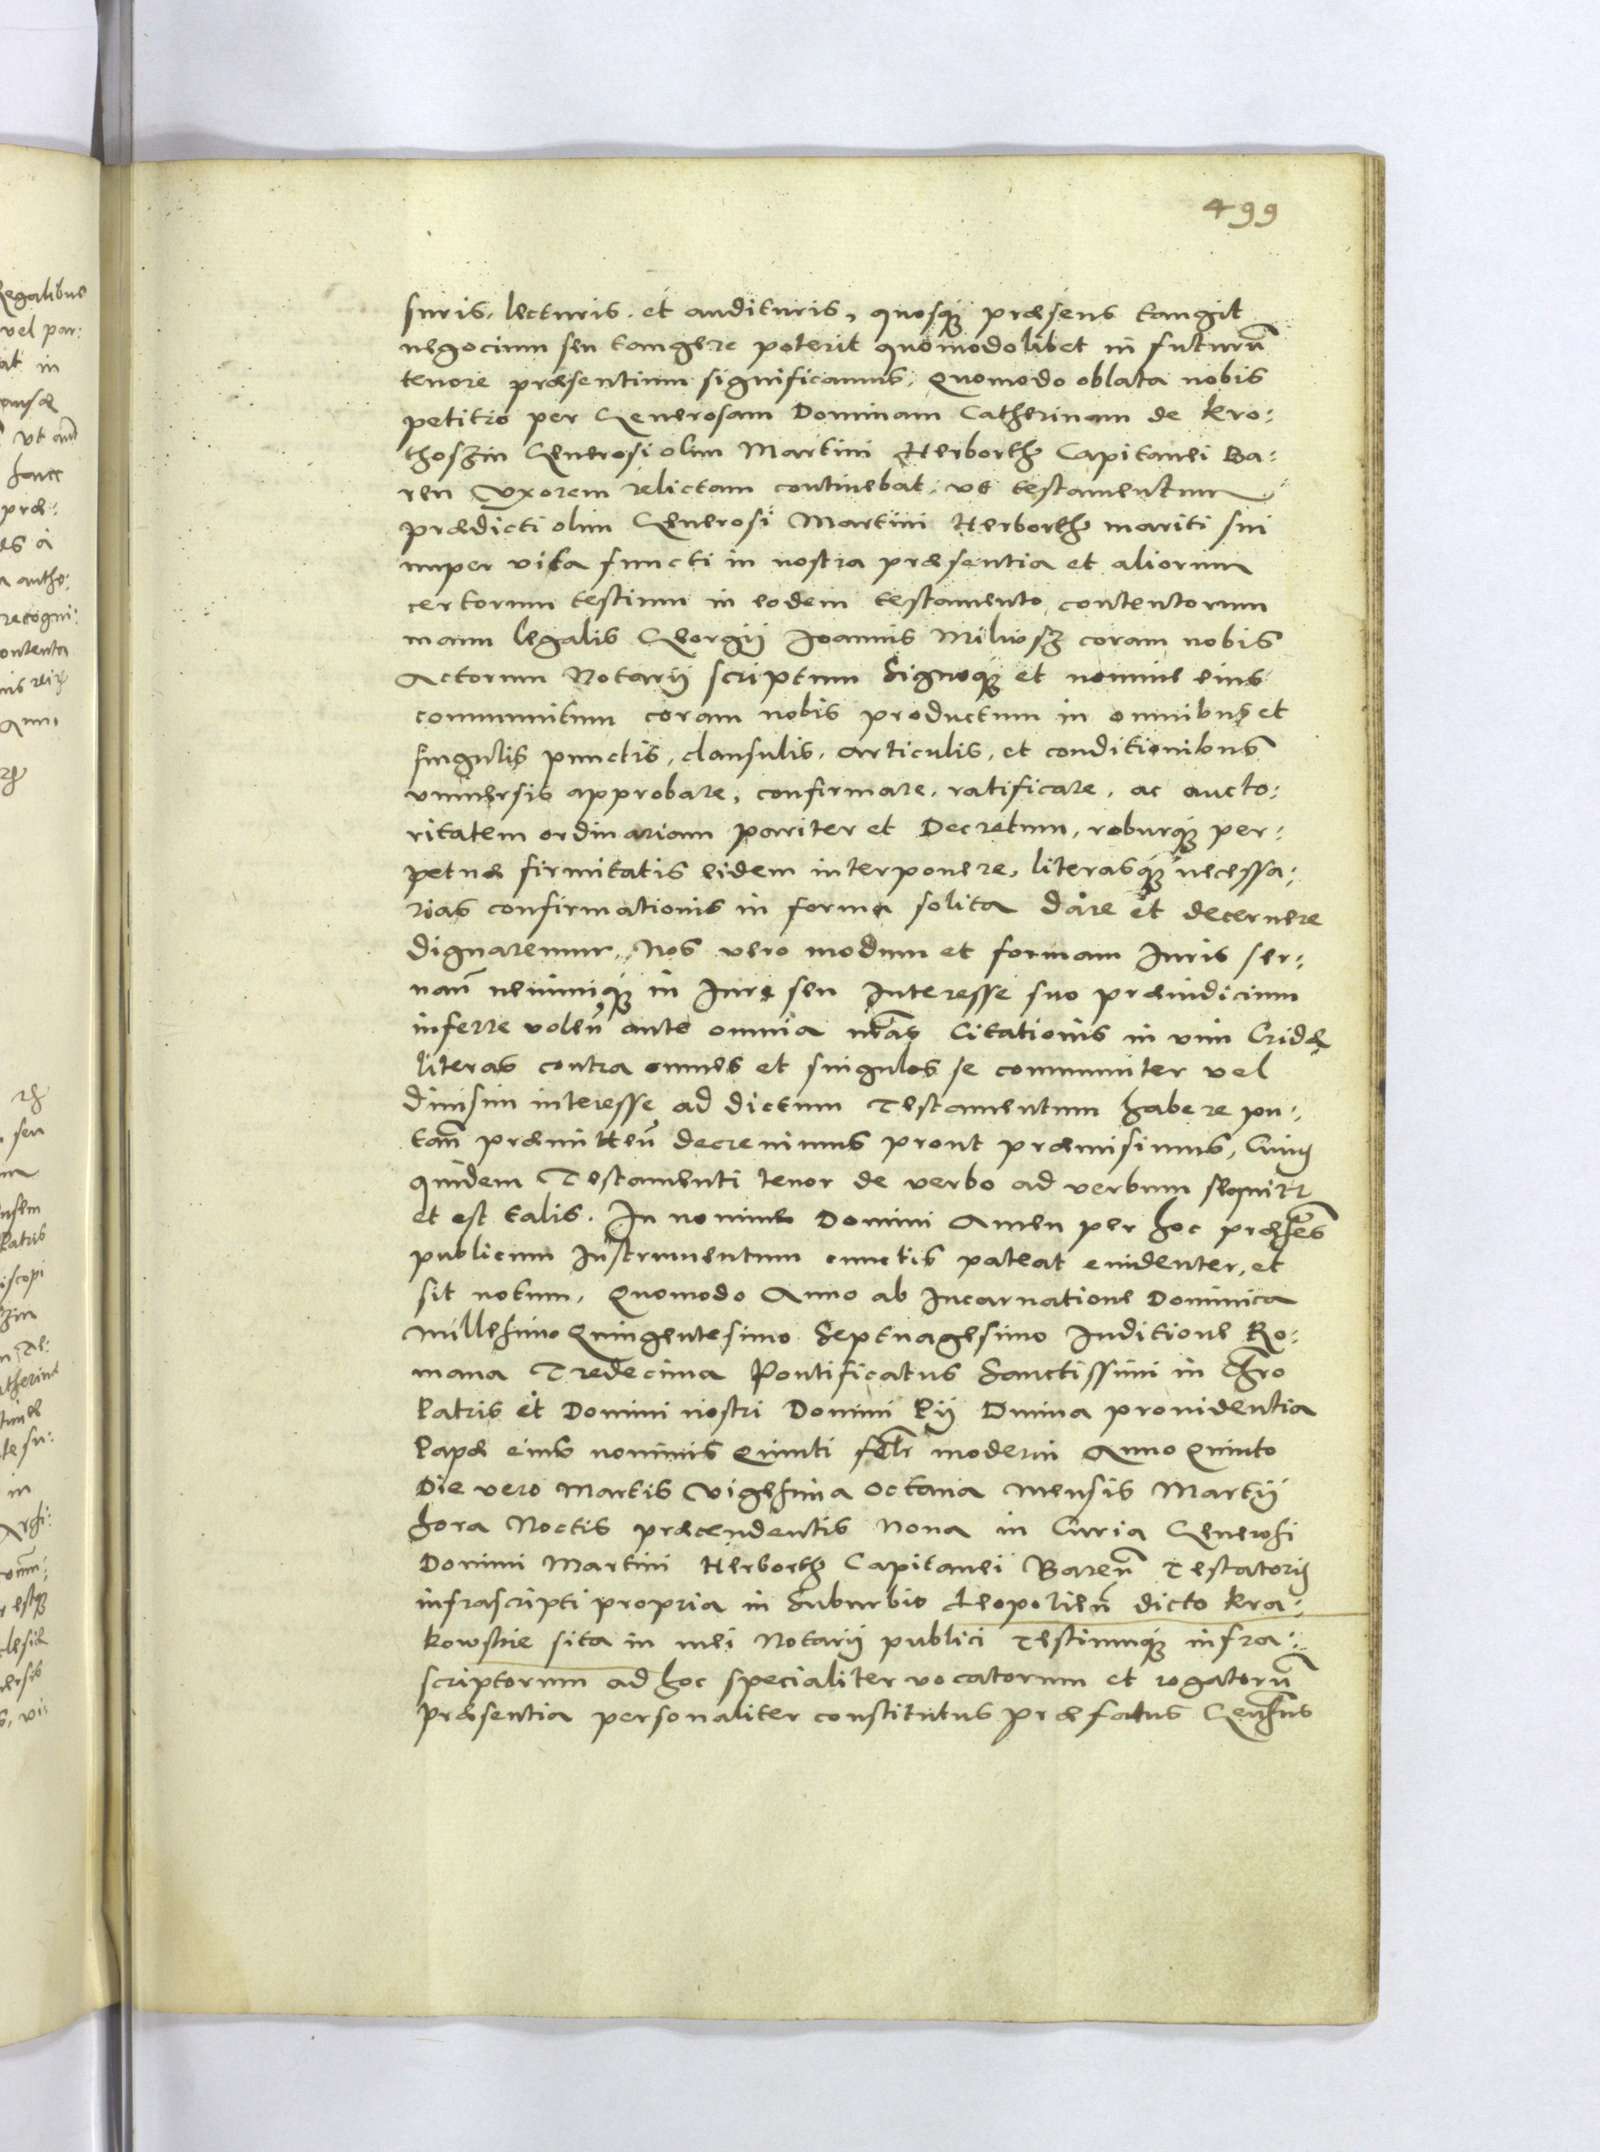 499
suris, lecturis, et audituris, quosq₃ præsens tangit
negocium seu tangere poterit quomodolibet in futurū
tenore præsentium significamus, Quomodo oblata nobis
petitio per Generosam Dominam Catherinam de Kro:
thoszin Generosi olim Martini Herborth Capitanei Ba:
ren Uxorem relictam continebat, ut testamentum
prædicti olim Generosi Martini Herborth mariti sui
nuper vita functi in nostra præsentia et aliorum
certorum testium in eodem testamento contentorum
manu legalis Georgii Joannis Milwsz coram nobis
Actorum Notarij scriptum Signoq₃ et nomine eius
communitum coram nobis productum in omnibus et
singulis punctis, clausulis, articulis, et conditionibus
vniuersis approbare, confirmare, ratificare, ac aucto:
ritatem ordinariam pariter et Decretum, roburq₃ per:
petuæ firmitatis eidem interponere, literasq₃ necessa:
rias confirmationis in forma solita dare et decernere
dignaremur, Nos vero modum et formam Iuris ser:
uan̄ neminiq₃ in Iure seu Interesse suo præiudicium
inferre volen̄ ante omnia nr̄as Citationis in vim Cridæ
literas contra omnes et singulos se communiter vel
diuisim interesse ad dictum Testamentum habere pu:
tan̄ præmitten̄ decreuimus prout præmisimus, Cuius
quidem Testamenti tenor de verbo ad verbum sequitr
et est talis. In nomine Domini Amen per hoc præsēs
publicum Instrumentum cunctis pateat euidenter, et
sit notum, Quomodo Anno ab Incarnatione Dominica
Millesimo Quingentesimo Septuagesimo Inditione Ro:
mana Tredecima Pontificatus Sanctissimi in Chr̄o
Patris et Domini nostri Domini Pij Diuina prouidentia
Papæ eius nominis Quinti fel̄r moderni Anno Quinto
Die vero Martis Vigesima Octaua Mensis Martij
hora Noctis præcendentis Nona in Curia Generosi
Domini Martini Herborth Capitanei Baren̄ Testatoris
infrascripti propria in Suburbio Leopolien̄ dicto Kra:
kowskie sita in mei Notarij publici Testiumq₃ infra:
scriptorum ad hoc specialiter vocatorum et rogatorū
præsentia personaliter constitutus præfatus Gen̄sus